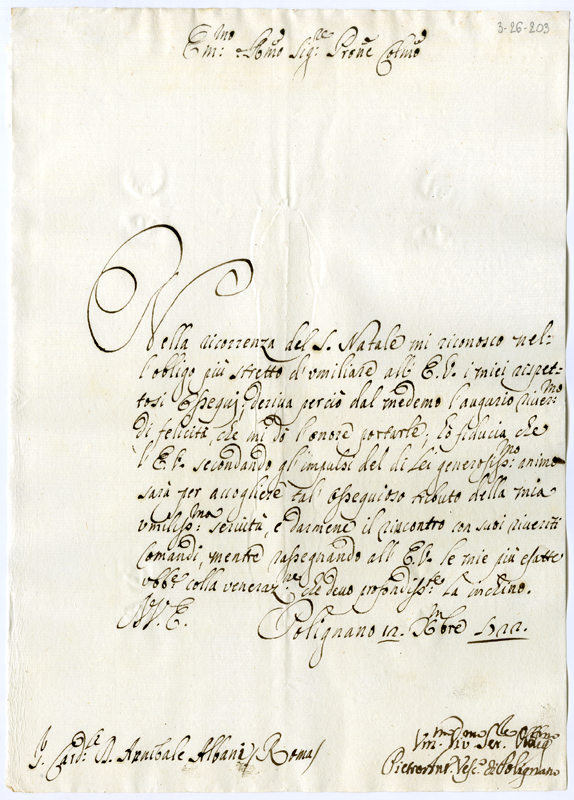 3-26-203
Em:mo e Rmo Sig:re Prone Colmo
Nella ricorrenza del S. Natale mi riconosco nel-
l'obligo più stretto d'umiliare all' E. V. i miei rispet-
tosi ossequi; deriva perciò dal medemo l'augurio river:mo
di felicità, che mi dò l'onore portarle; Hò fiducia che
l'E. V. secondando gl'impulsi del di Lei generosiss:mo animo
sarà per accogliere tal' ossequioso tributo della mia
umiliss:ma servitù, e darmene il riscontro con suoi riveriti
comandi, mentre rassegnando all' E. V. le mie più esatte
obbe colla veneraz:ne che devo profondiss:te La inchino.
D. V. E.
Polignano 12. Xmbre 1722.
Sr. Card:le D. Annibale Albani / Roma /
Um:mo Div:mo Ser.
Pietrant: Vesc: di Polignano